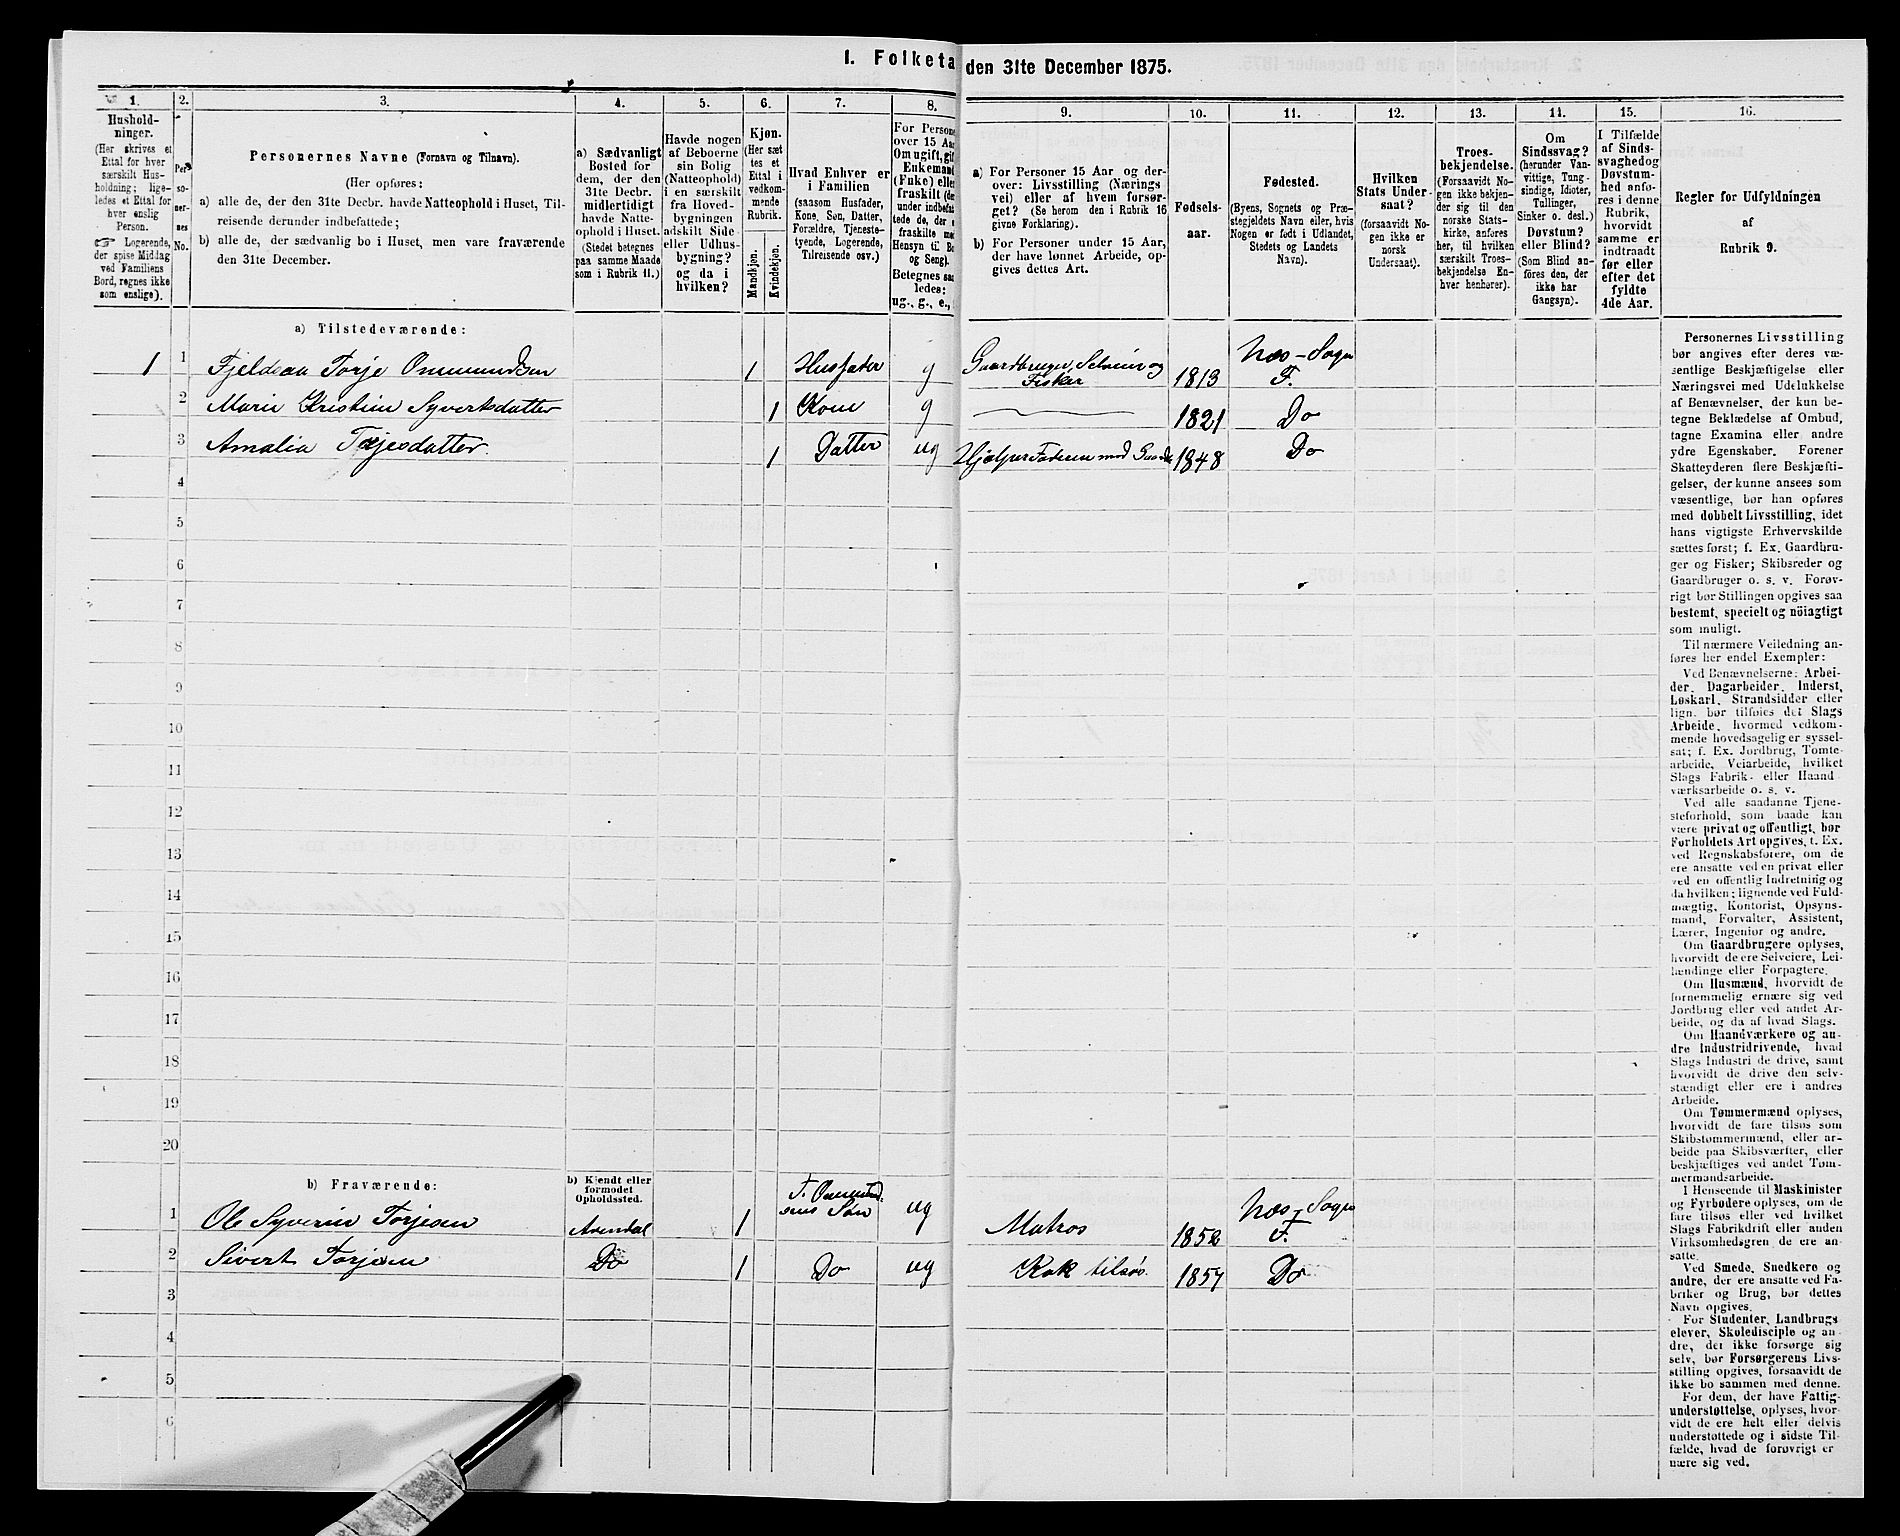 I. Folketa den 31te December 1875.
1. 2. 3. 4. 5. 6. 7. 8. 9. 10. 11. 12. 13. 14. 15. 16.
Hushold-
ninger.
(Her skrives et
Ettal for hver
særskilt Hus-
holdning; lige-
ledes et Ettal for
hver enslig
Person.
☞ Logerende,
der spise Middag
ved Familiens
Bord, regnes ikke
som enslige).
Per
so-
ner-
nes
No.
Personernes Navne (Fornavn og Tilnavn).
(Her opføres:
a) alle de, der den 31te Decbr. havde Natteophold i Huset, Til-
reisende derunder indbefattede;
b) alle de, der sædvanlig bo i Huset, men vare fraværende
den 31te December.
a) Sædvanligt
Bosted for
dem, der den
31te Decbr.
midlertidigt
havde Natte-
ophold i Huset.
(Stedet betegnes
paa samme Maade
som i Rubrik 11.)
Havde nogen
af Beboerne
sin Bolig
(Natteophold)
i en særskilt
fra Hoved-
bygningen
adskilt Side-
eller Udhus-
bygning?
og da i
hvilken?
Kjøn.
(Her sæt
tes et
Ettal i
vedkom-
mende
Rubrik.
Mandkjøn.
Kvindekjøn.
Hvad Enhver er
i Familien
(saasom Husfader,
Kone, Søn, Datter,
Forældre, Tjeneste-
tyende, Logerende,
Tilreisende osv.)
For Persone
over 15 Aar
Om ugift, gif
Enkemand
(Fuke) elle
fraskilt (de
under indbefat
tede de, der
fraskilte me
Hensyn til Bo
og Seng).
Betegnes saa
ledes:
ug., g., e.,
a) For Personer 15 Aar og der-
over: Livsstilling (Nærings
vei) eller af hvem forsør-
get? (Se herom den i Rubrik 16
givne Forklaring).
b) For Personer under 15 Aar,
der have lønnet Arbeide, op-
gives dettes Art.
Fødsels-
aar.
Fødested.
(Byens, Sognets og Præ-
stegjeldets Navn eller, hvis
Nogen er født i Udlandet,
Stedets og Landets
Navn).
Hvilken
Stats Under-
saat?
(forsaavidt No-
gen ikke er
norsk
Undersaat).
Troes-
bekjendelse.
(Forsaavidt No-
gen ikke bekjen-
der sig til den
norske Stats-
kirke, anføres
her, til hvilken
særskilt Troes-
bekjendelse En-
hver henhører).
Om
Sindssvag?
(herunder Van-
vittige, Tung-
sindige, Idioter,
Tullinger,
Sinker o. desl.)
Døvstum?
eller Blind?
(Som Blind an-
føres den, der
ikke har
Gangsyn).
I Tilfælde
af Sinds-
svaghed og
Døvstum-
hed anfø-
res i denne
Rubrik,
hvorvidt
samme er
indtraadt
før eller
efter det
fyldte
4de Aar.
Regler for Udfyldningen
af
Rubrik 9.
a) Tilstedeværende:
1 1 Fjeldsaa Torje Ommundsen 1 Husfader g Gaardbruger, Selveier og Fisker 1813 Næs-Sogn F.
2 Marie Kristine Syvertsdatter 1 Kone g 1821 Do
3 Amalia Torjesdatter. 1 Datter ug Hjælper Faderen med 1848 Do
4
5
6
7
8
9
10
11
12
13
14
15
16
17
18
19
20
b) Fraværende:
b) Kjendt eller
formodet
Opholdssted.
1 Ole Syverin Torjesen Arendal 1 T. Ommundsens Søn ug Matros 1852 Næs-Sogn F.
2 Sivert Torjesen Do 1 Do ug Kok tilsøs. 1857 Do
3
4
5
6
Personernes Livsstilling
bør angives efter deres væ-
sentlige Beskjæftigelse eller
Næringsvei med Udelukkelse
af Benævnelser, der kun be-
tegne Beklædelse af Ombud,
tagne Examina eller andre
ydre Egenskaber. Forener
Skatteyderen flere Beskjæfti-
gelser, der kunne ansees som
væsentlige, bør han opføres
med dobbelt Livsstilling, idet
hans vigtigste Erhvervskilde
sættes først; f. Ex. Gaardbru-
ger og Fisker; Skibsreder og
Gaardbruger o. s. v. Forøv-
rigt bør Stillingen opgives saa
bestemt, specielt og nöiagtigt
som muligt.
Til nærmere Veiledning an-
føres her endel Exempler:
Ved Benævnelserne: Arbei-
der, Dagarbeider, Inderst,
Løskarl, Strandsidder eller
lign. bør tilføies det Slags
Arbeide, hvormed vedkom-
mende hovedsagelig er syssel-
sat; f. Ex. Jordbrug, Tomte-
arbeide, Veiarbeide, hvilket
Slags Fabrik- eller Haand
værksarbeide o. s. v.
Ved alle saadanne Tjene-
steforhold, som baade kan
være privat og offentligt, bør
Forholdets Art opgives, t. Ex.
ved Regnskabsførere, om de
ere ansatte ved en privat eller
ved en offentlig Indretning og
da hvilken; lignende ved Fuld-
mægtig, Kontorist, Opsyns-
mand, Forvalter, Assistent,
Lærer, Ingeniør og andre.
Om Gaardbrugere oplyses,
hvorvidt de ere Selveiere, Lei-
lændinge eller Forpagtere.
Om Husmænd, hvorvidt de
fornemmelig ernære sig ved
Jordbrug eller ved andet Ar-
beide, og da af hvad Slags.
Om Haandværkere og an-
dre Industridrivende, hvad
Slags Industri de drive, samt
hvorvidt de drive den selv-
stændigt eller ere i andres
Arbeide.
Om Tømmermænd oplyses,
hvorvidt de fare tilsøs som
Skibstømmermænd, eller ar-
beide paa Skibsværfter, eller
beskjæftiges ved andet Tøm-
mermandsarbeide.
I Henseende til Maskinister
og Fyrbødere oplyses, om de
fare tilsøs eller ved hvilket
Slags Fabrikdrift eller anden
Virksomhedsgren de ere an-
satte.
Ved Smede, Snedkere og
andre, der ere ansatte ved Fa-
briker og Brug, bør dettes
Navn opgives.
For Studenter, Landbrugs
elever, Skoledisciple og an-
dre, der ikke forsørge sig
selv, bør Forsørgerens Livs-
stilling opgives, forsaavidt de
ikke bo sammen med denne.
For dem, der have Fattig-
understøttelse, oplyses, hvor-
vidt de ere helt eller delvis
understøttede og i sidste Til-
fælde, hvad de forøvrigt er
nære sig ved.